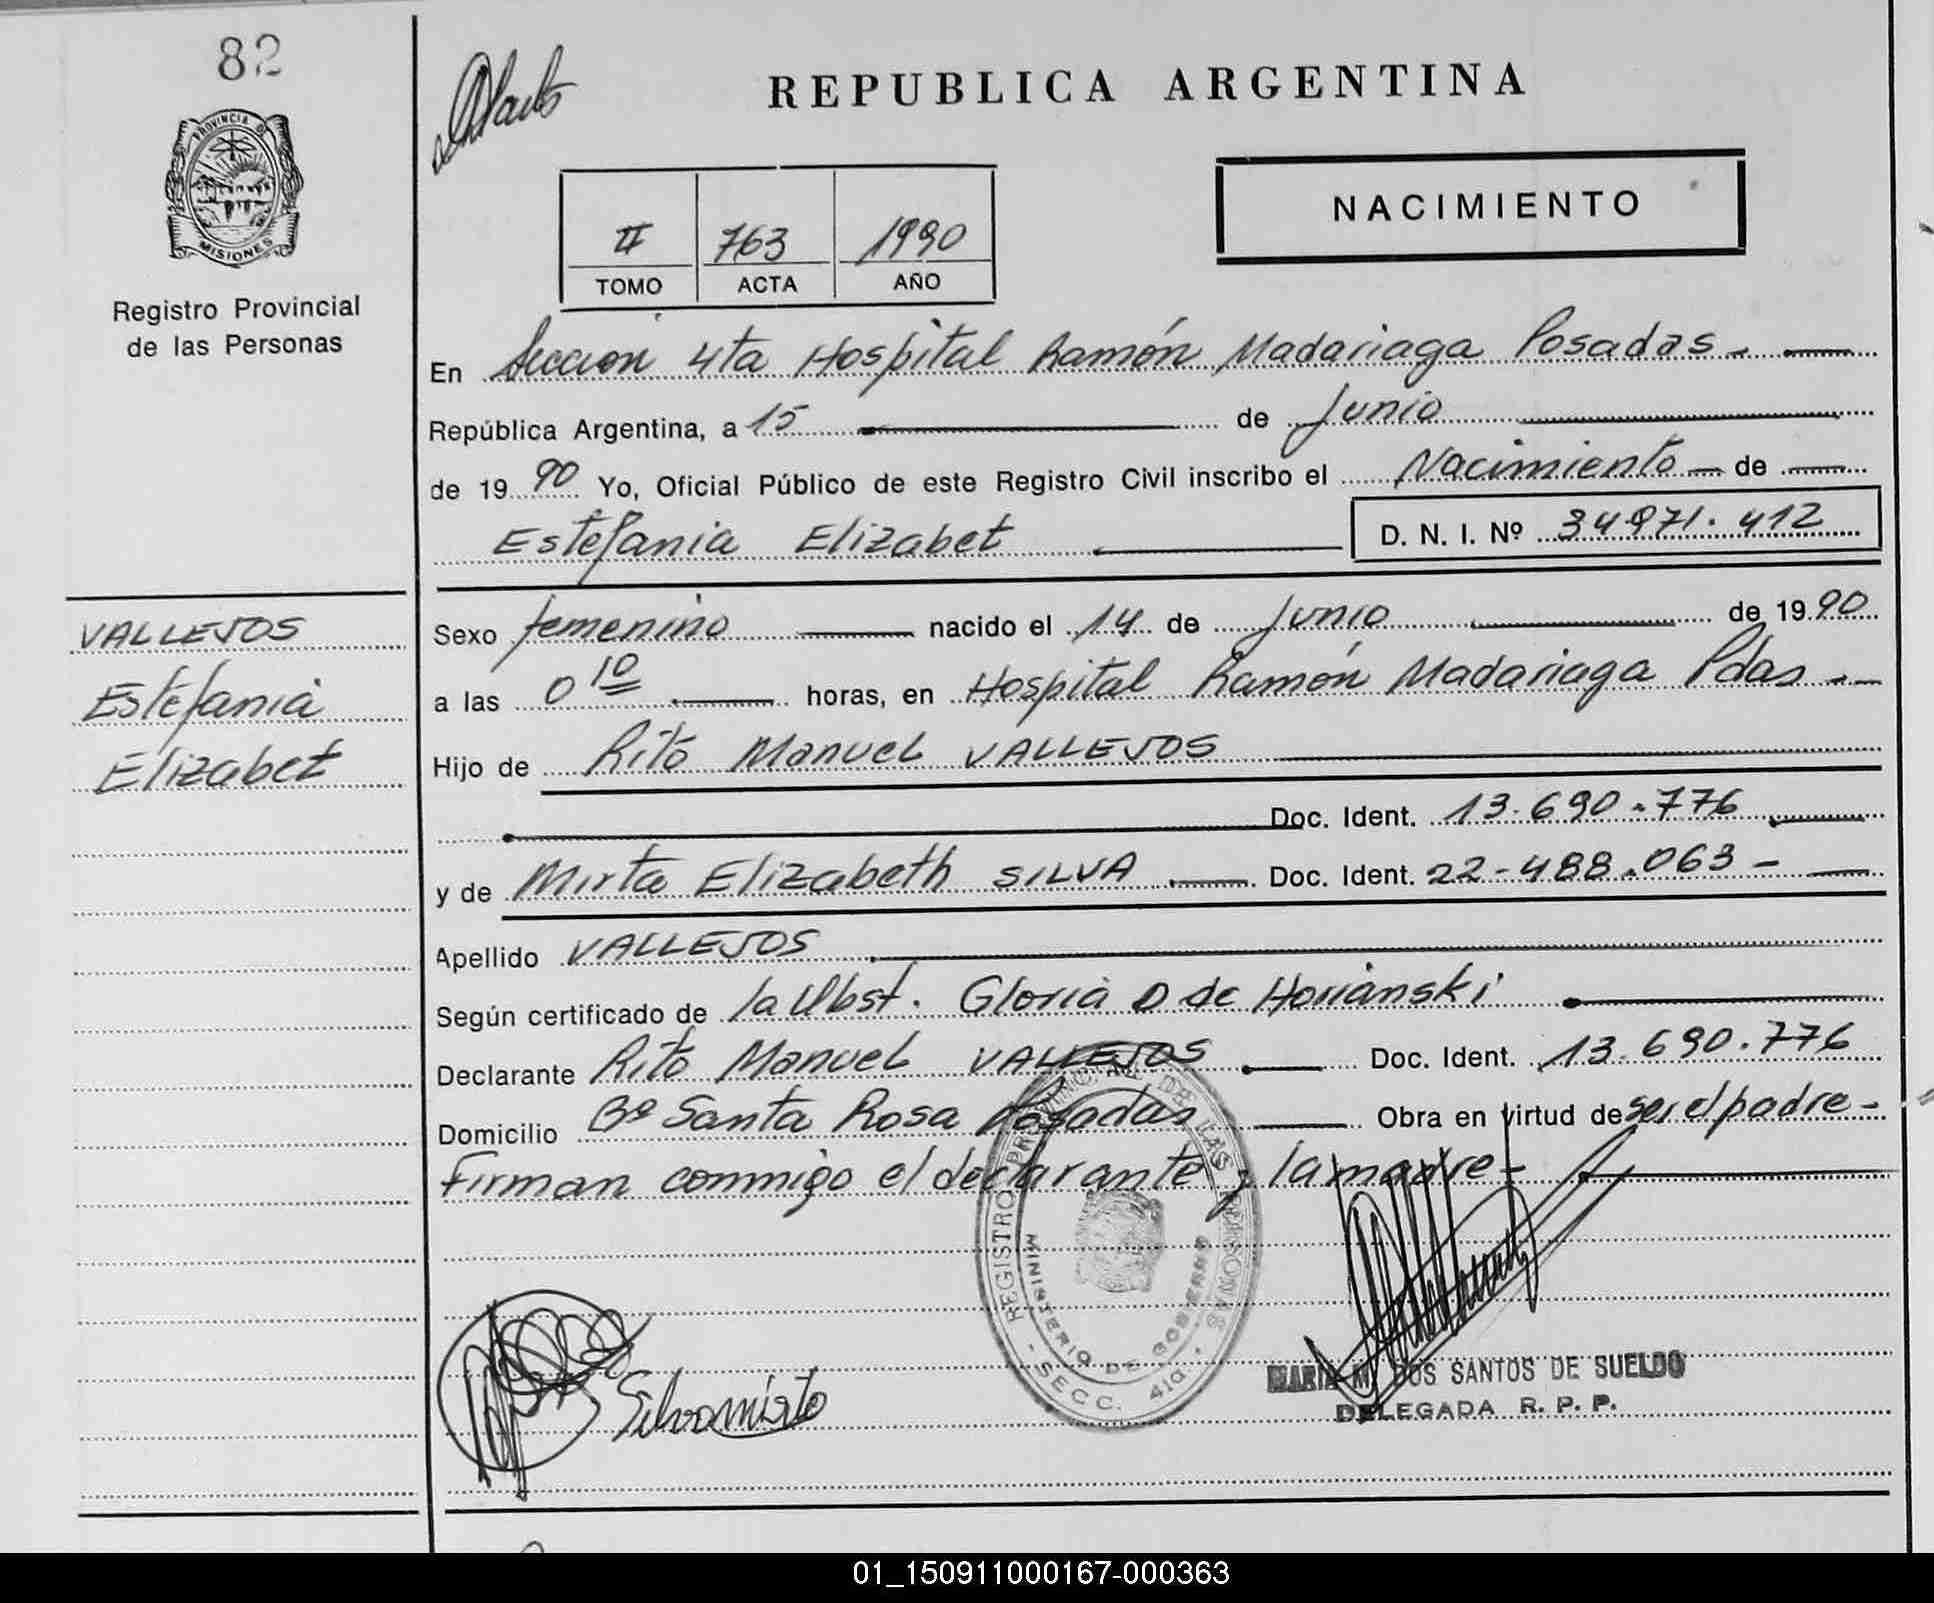 82
PROVINCIA DE
MISIONES
Registro Provincial
de las Personas
VALLEJOS
Estefania
Elizabet
REPUBLICA ARGENTINA
NACIMIENTO
II 763 1990
TOMO ACTA AÑO
En Sección 4ta Hospital Ramón Madariaga Posadas -
República Argentina, a 15 de Junio
de 1990 Yo, Oficial Público de este Registro Civil inscribo el Nacimiento de
Estefania Elizabet D. N. I. Nº 34.971.412
Sexo femenino nacido el 14 de Junio de 1990
a las 0 10 horas, en Hospital Ramón Madariaga Pdas -
Hijo de Rito Manuel VALLEJOS
Doc. Ident. 13.690.776
y de Mirta Elizabeth SILVA Doc. Ident. 22-488.063 -
Apellido VALLEJOS
Según certificado de la Obst. Gloria D de Horianski
Declarante Rito Manuel VALLEJOS Doc. Ident. 13.690.776
Domicilio Bº Santa Rosa Posadas Obra en virtud de ser el padre -
Firman conmigo el declarante y la madre -
REGISTRO PROVINCIAL DE LAS PERSONAS
MINISTERIO DE GOBIERNO
- SECC. 4ta. -
Silva mirta
MARIA M. DOS SANTOS DE SUELDO
DELEGADA R. P. P.
01_150911000167-000363